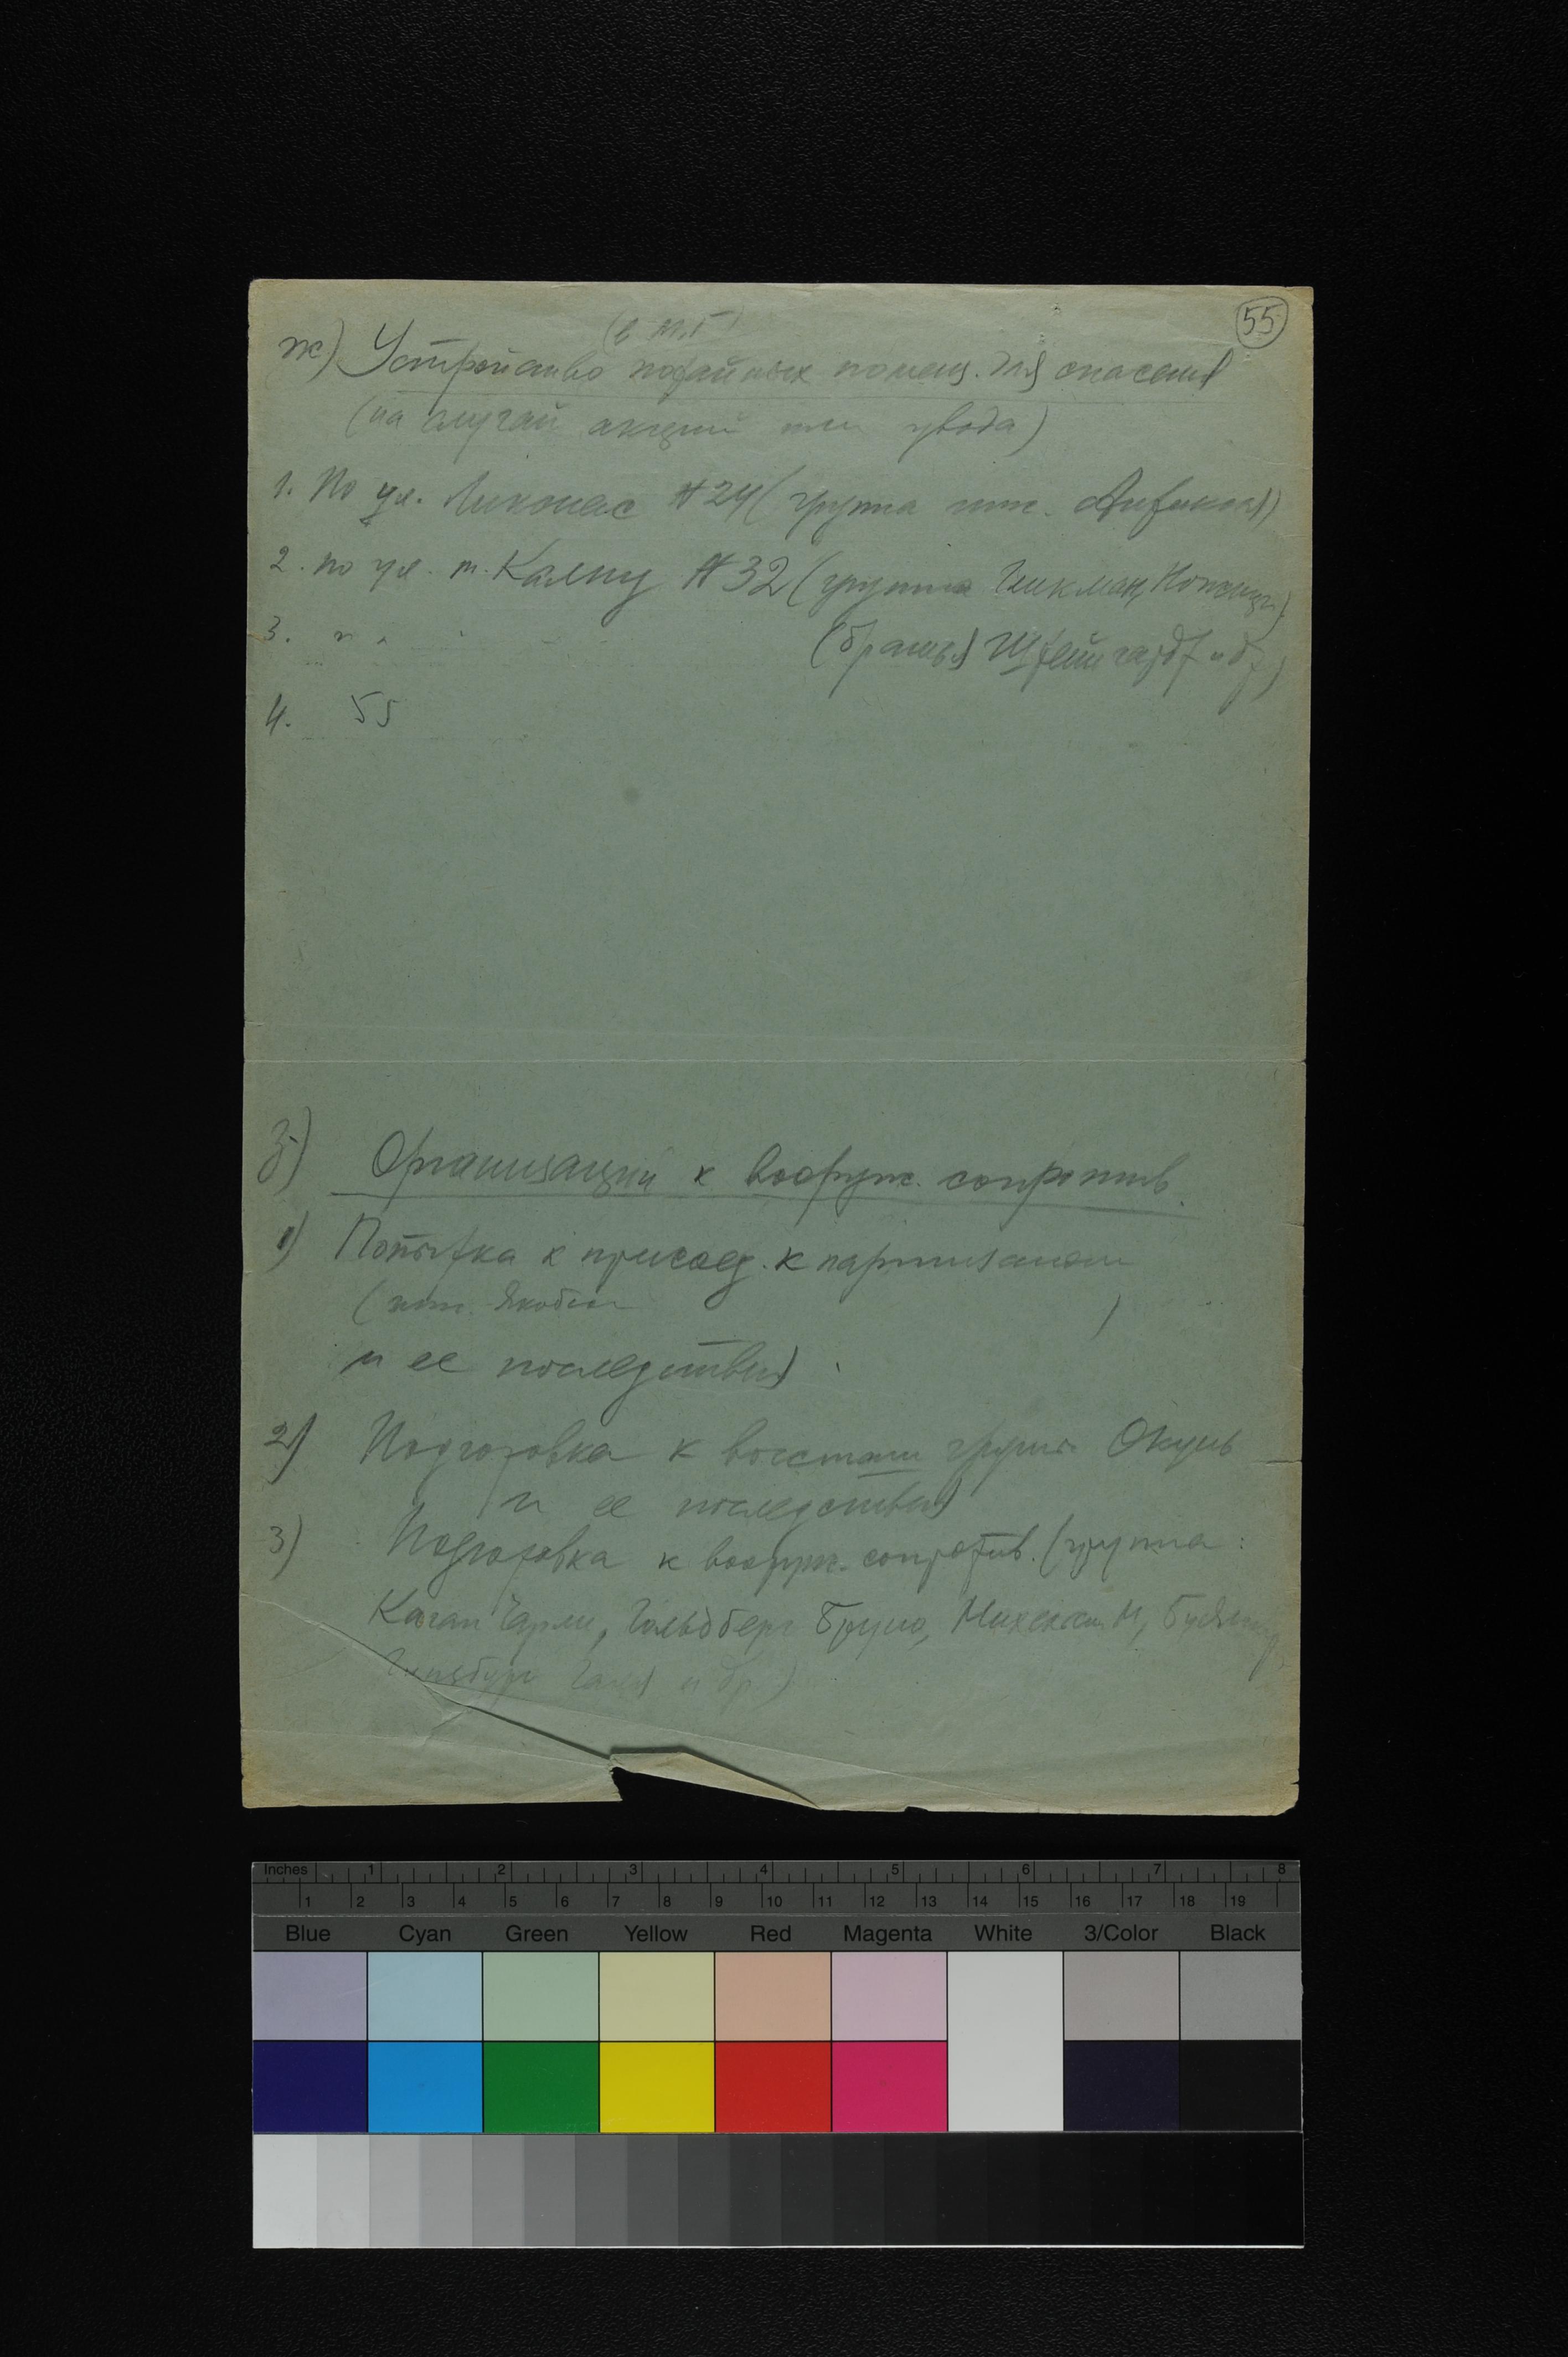 55
(в М.Г)
ж) Устройство потайных помещ. для спасения
(на случай акции или увода)
1. По ул. Ликснас № 24 (группа инж.
2. по ул. м. Калну № 32 (группа Гликман,
3. " " (братья и др)
4. 55
з) Организаций к вооруж. сопротив.
1) Попытка к присоед. к партизанам
(инж. )
и ее последствия
2) Подготовка к восстани группы Окунь
и ее последствия
3) Подготовка к вооруж. сопротив. (группа:
Каган Чарли, Гольдберг Бруно,
Гинзбург и др.)
Inches 1 2 3 4 5 6 7 8
1 2 3 4 5 6 7 8 9 10 11 12 13 14 15 16 17 18 19
Blue Cyan Green Yellow Red Magenta White 3/Color Black